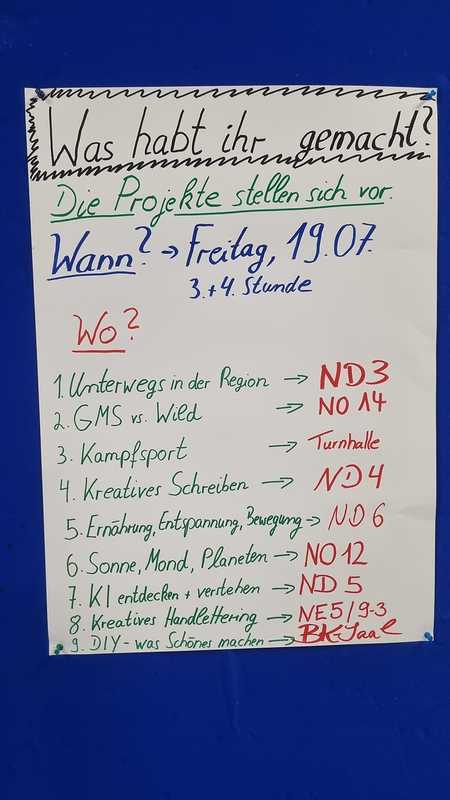 Was habt ihr gemacht?
Die Projekte stellen sich vor.
Wann? → Freitag, 19.07.
3.+4. Stunde
Wo?
1. Unterwegs in der Region → ND3
2. GMS vs. Wild → NO 14
3. Kampfsport → Turnhalle
4. Kreatives Schreiben → ND4
5. Ernährung, Entspannung, Bewegung → ND 6
6. Sonne, Mond, Planeten → NO 12
7. KI entdecken + verstehen → ND 5
8. Kreatives Handlettering → NE5/9-3
9. DIY - was Schönes machen → BK-Saal